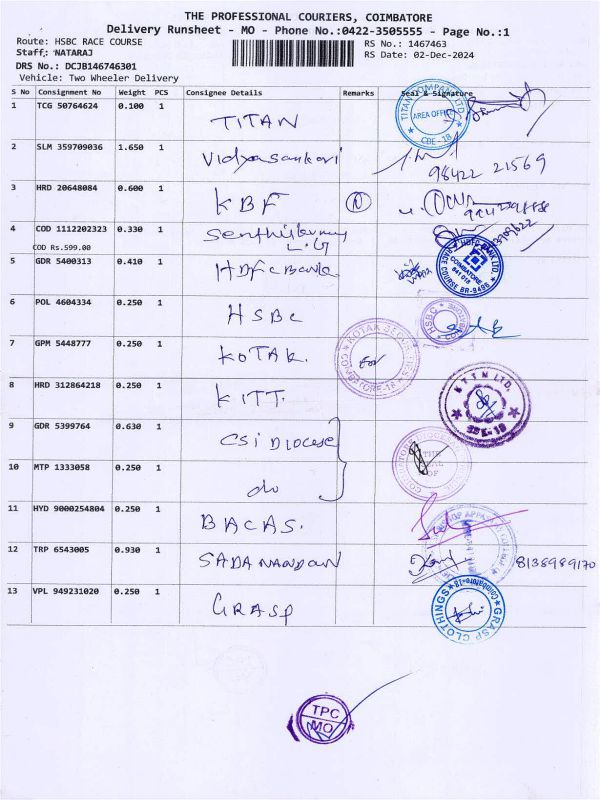 THE PROFESSIONAL COURIERS, COIMBATORE
Delivery Runsheet - MO - Phone No.:0422-3505555 - Page No.:1
Route: HSBC RACE COURSE
RS No.: 1467463
Staff: NATARAJ
RS Date: 02-Dec-2024
DRS No.: DCJB146746301
Vehicle: Two Wheeler Delivery
S No Consignment No Weight PCS Consignee Details Remarks Seal & Signature
1 TCG 50764624 0.100 1 TITAN
TITAN COMPANY LTD. AREA OFFICE CBE-18
2 SLM 359709036 1.650 1 Vidyasankari 98422 21569
3 HRD 20648084 0.600 1 KBF N
4 COD 1112202323 0.330 1
COD Rs.599.00
5 GDR 5400313 0.410 1 Hdfc Bank
HDFC BANK LTD. COIMBATORE 641 018 RACE COURSE BR-9496
6 POL 4604334 0.250 1 HSBC
HSBC
7 GPM 5448777 0.250 1 KOTAK
KOTAK COIMBATORE-18
8 HRD 312864218 0.250 1 KITT.
K T T M LTD.
9 GDR 5399764 0.630 1 CSI Diocese
10 MTP 1333058 0.250 1 do
THE SEAL OF
11 HYD 9000254804 0.250 1 BACAS.
12 TRP 6543005 0.930 1 SADANANDAN 8138989170
13 VPL 949231020 0.250 1 GRASP
GRASP CLOTHINGS Coimbatore-18
TPC
MO